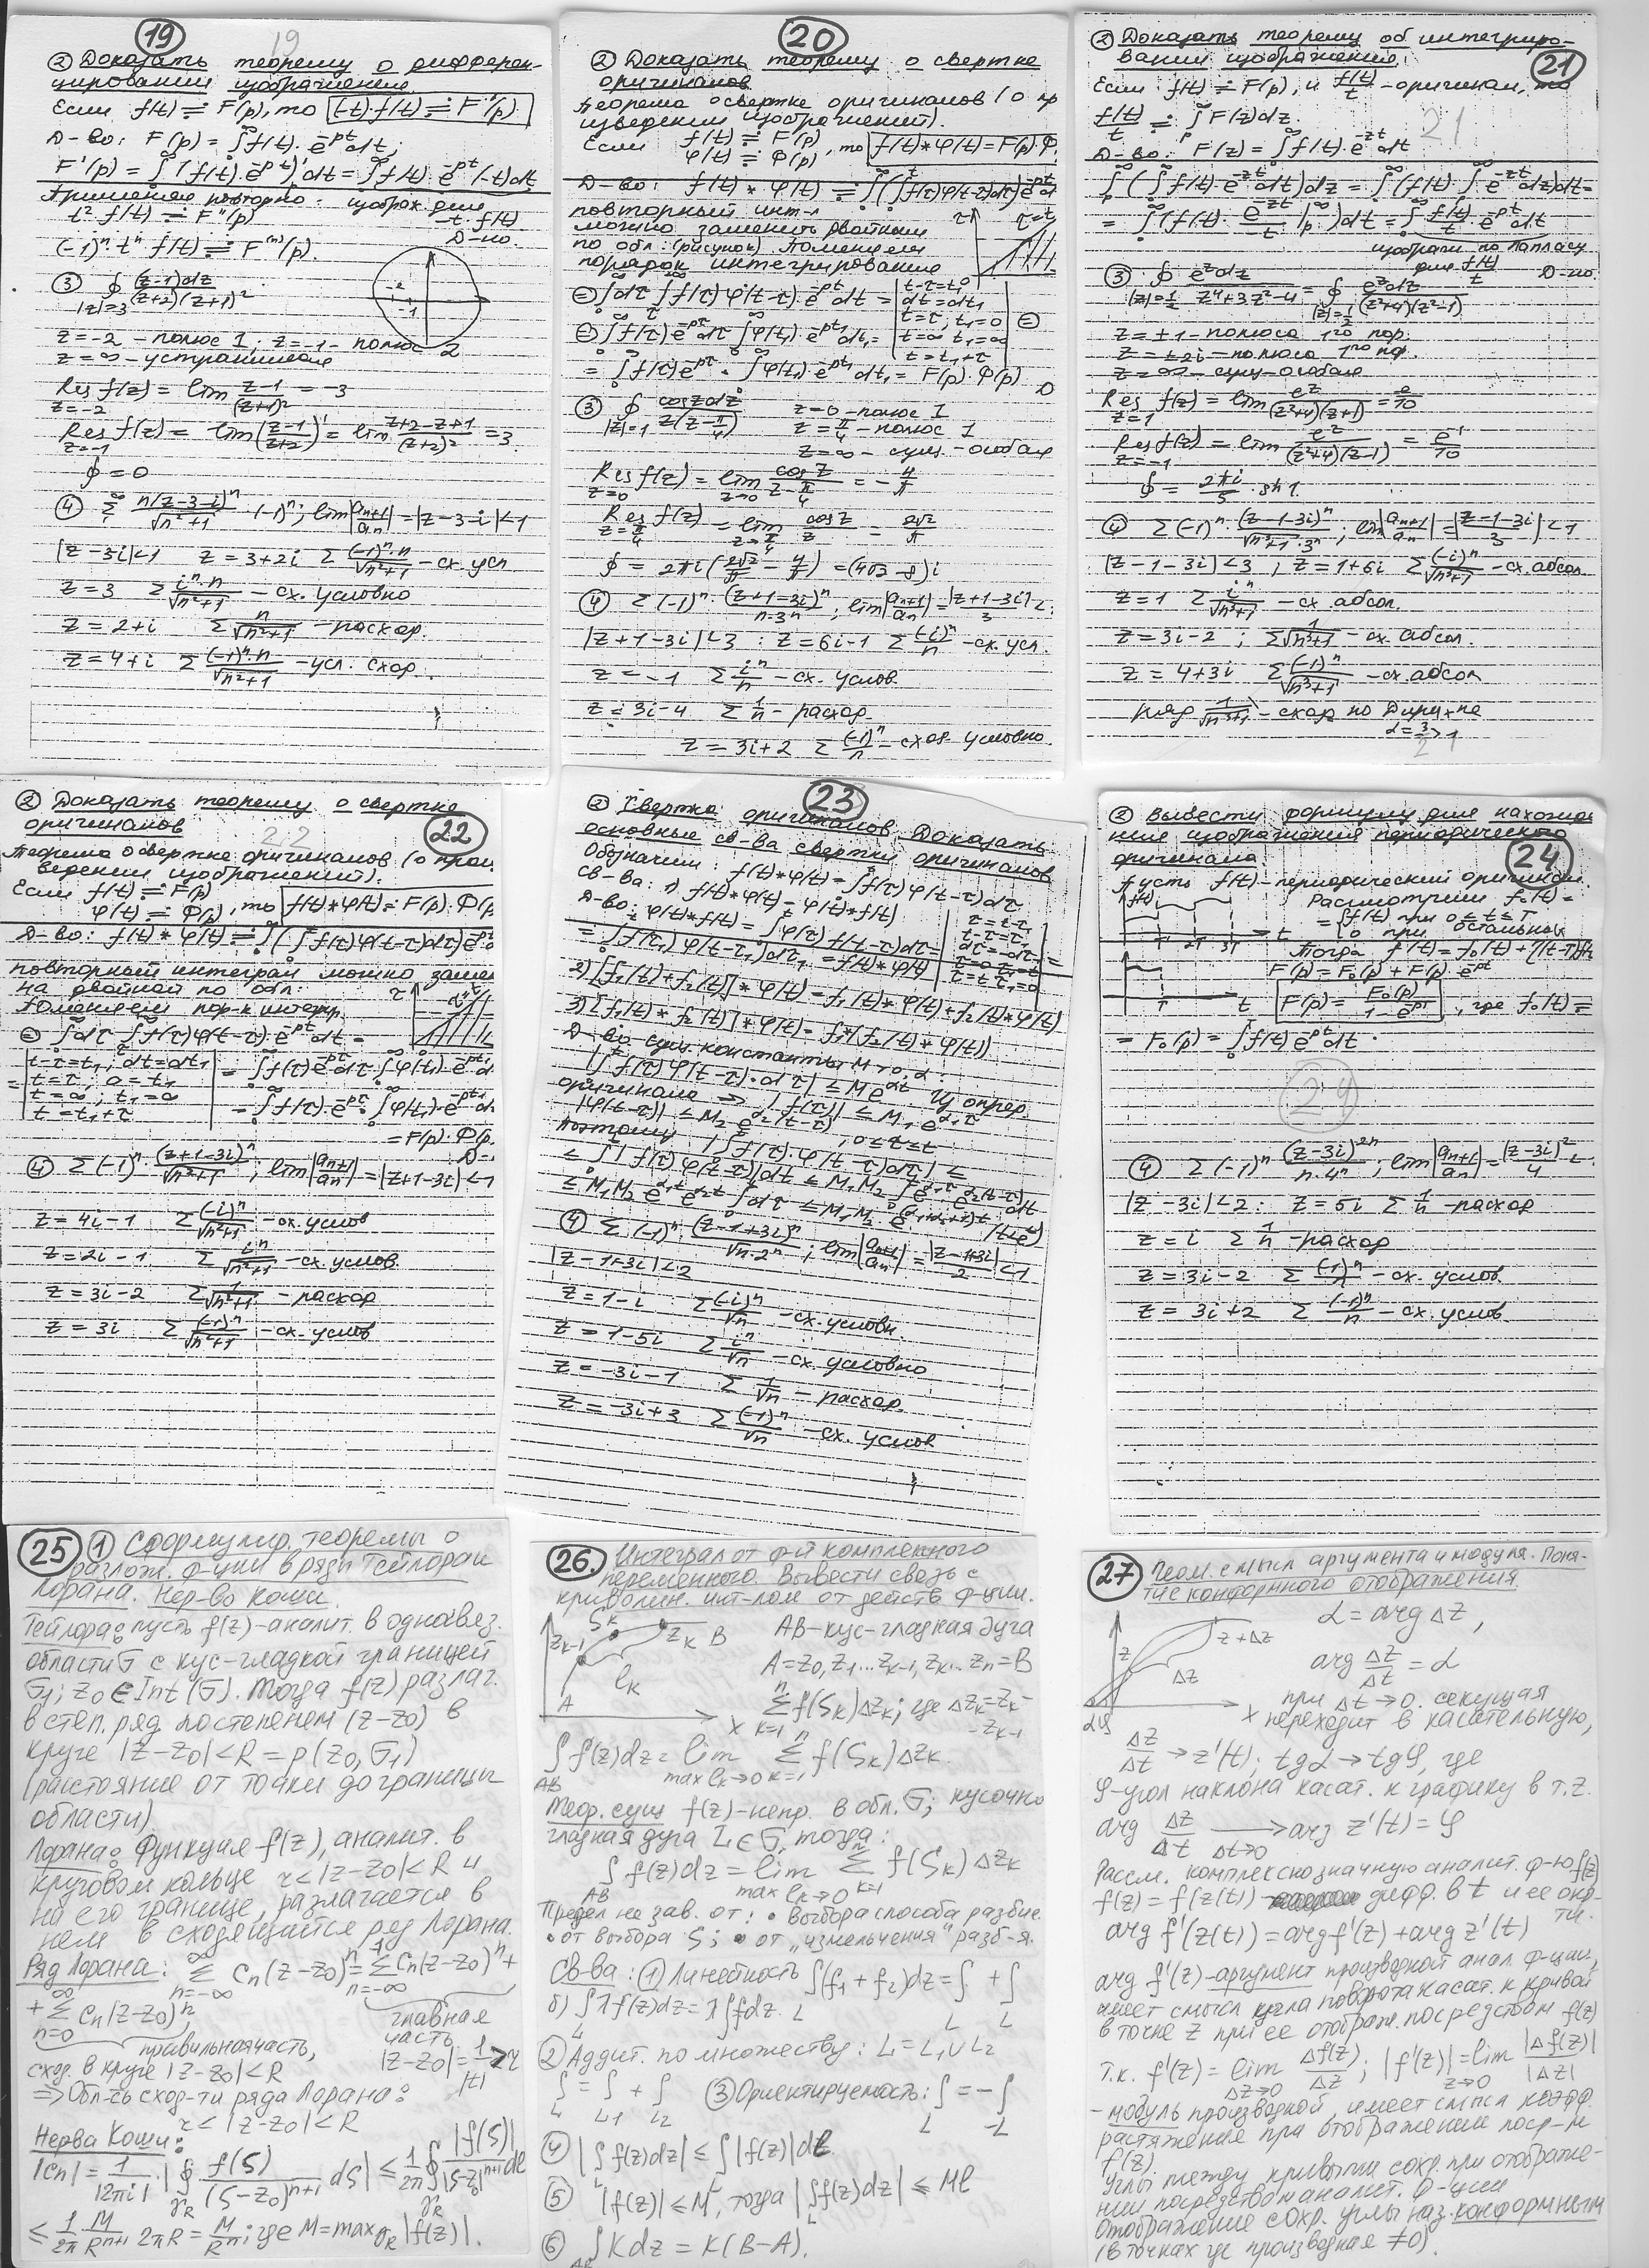 19
19
② Доказать теорему о дифферен-
цировании изображения.
Если f(t) ≓ F(p), то (-t)·f(t) ≓ F'(p).
Д-во: F(p) = ∫f(t)·e^{-pt}dt;
F'(p) = ∫(f(t)·e^{-pt})'dt = ∫f(t)·e^{-pt}(-t)dt
Применяем повторно: изображ. для
t²·f(t) ≓ F''(p) -t·f(t)
(-1)ⁿ·tⁿ·f(t) ≓ F⁽ⁿ⁾(p). Д-но.
③ ∮_{|z|=3} (z-1)dz/((z+2)(z+1)²)
z=-2 - полюс 1; z=-1 - полюс 2
z=∞ - устранимая
Res_{z=-2} f(z) = lim (z-1)/(z+1)² = -3
Res_{z=-1} f(z) = lim((z-1)/(z+2))' = lim (z+2-z+1)/(z+2)² = 3
∮ = 0
④ Σ n(z-3-i)ⁿ/√(n²+1) ·(-1)ⁿ; lim|aₙ₊₁/aₙ| = |z-3-i|<1
|z-3i|<1 z=3+2i Σ (-1)ⁿ·n/√(n²+1) - сх. усл
z=3 Σ iⁿ·n/√(n²+1) - сх. условно
z=2+i Σ n/√(n²+1) - расход.
z=4+i Σ (-1)ⁿ·n/√(n²+1) - усл. сход.
20
② Доказать теорему о свертке
оригиналов
Теорема о свертке оригиналов (о пр
изведении изображений).
Если f(t) ≓ F(p)
φ(t) ≓ Φ(p), то f(t)*φ(t)=F(p)·Φ
Д-во: f(t)*φ(t) ≓ ∫(∫f(τ)φ(t-τ)dτ)e^{-pt}dt
повторный инт-л
можно заменить двойным
по обл. (рисунок) Поменяем
порядок интегрирования
= ∫dτ ∫f(τ)φ(t-τ)·e^{-pt}dt = | t-τ=t₁ dt=dt₁ t=τ; t₁=0 t=∞ t₁=∞ t=t₁+τ | =
= ∫f(τ)e^{-pτ}dτ ∫φ(t₁)·e^{-pt₁}dt₁ =
= ∫f(τ)e^{-pτ} · ∫φ(t₁)·e^{-pt₁}dt₁ = F(p)·Φ(p) Д
③ ∮_{|z|=1} cosz dz/(z(z-π/4)) z=0 - полюс 1
z=π/4 - полюс 1
z=∞ - сущ-особая
Res_{z=0} f(z) = lim_{z→0} cosz/(z-π/4) = -4/π
Res_{z=π/4} f(z) = lim_{z→π/4} cosz/z = 2√2/π
∮ = 2πi(2√2/π - 4/π) = (4√2-8)i
④ Σ(-1)ⁿ·(z+1-3i)ⁿ/(n·3ⁿ); lim|aₙ₊₁/aₙ| = |z+1-3i|/3 <
|z+1-3i|<3: z=6i-1 Σ (-i)ⁿ/n - сх. усл.
z=-1 Σ iⁿ/n - сх. услов.
z=3i-4 Σ 1/n - расход.
z=3i+2 Σ (-1)ⁿ/n - сход. условно.
② Доказать теорему об интегриро-
вании изображения.
21
Если f(t) ≓ F(p), и f(t)/t - оригинал, то
f(t)/t ≓ ∫F(z)dz.
21
Д-во: F(z) = ∫f(t)·e^{-zt}dt
∫(∫f(t)·e^{-zt}dt)dz = ∫(f(t)·∫e^{-zt}dz)dt=
= ∫(f(t)·e^{-zt}/t |p^∞)dt = ∫f(t)/t·e^{-pt}dt
изображ. по Лапласу
для f(t)/t Д-но.
③ ∮_{|z|=1/2} e^z dz/(z⁴+3z²-4) = ∮_{|z|=1/2} e^z dz/((z²+4)(z²-1))
z=±1 - полюса 1го пор.
z=±2i - полюса 1го пор.
z=∞ - сущ-особая
Res_{z=1} f(z) = lim e^z/((z²+4)(z+1)) = e/10
Res_{z=-1} f(z) = lim e^z/((z²+4)(z-1)) = e^{-1}/10
∮ = 2πi/5 · sh1.
④ Σ(-1)ⁿ·(z-1-3i)ⁿ/(√(n³+1)·3ⁿ); lim|aₙ₊₁/aₙ| = |z-1-3i|/3 <1
|z-1-3i|<3; z=1+6i Σ (-i)ⁿ/√(n³+1) - сх. абсол.
z=1 Σ iⁿ/√(n³+1) - сх. абсол.
z=3i-2; Σ 1/√(n³+1) - сх. абсол.
z=4+3i Σ (-1)ⁿ/√(n³+1) - сх. абсол
ряд 1/√(n³+1) - сход. по Дирихле
α=3/2>1
21
② Доказать теорему о свертке
оригиналов
22
22
Теорема о свертке оригиналов (о прои
ведении изображений).
Если f(t) ≓ F(p)
φ(t) ≓ Φ(p), то f(t)*φ(t) ≓ F(p)·Φ(p
Д-во: f(t)*φ(t) ≓ ∫(∫f(τ)φ(t-τ)dτ)e^{-p
повторный интеграл можно заме
на двойной по обл.
Поменяем пор-к интегр.
= ∫dτ ∫f(τ)φ(t-τ)·e^{-pt}dt =
= | t-τ=t₁; dt=dt₁ t=τ; 0=t₁ t=∞; t₁=∞ t=t₁+τ | = ∫f(τ)e^{-pτ}dτ·∫φ(t₁)·e^{-pt₁}d
= ∫f(τ)·e^{-pτ}·∫φ(t₁)·e^{-pt₁}d
= F(p)·Φ(p.
Д-
④ Σ(-1)ⁿ·(z+1-3i)ⁿ/√(n²+1); lim|aₙ₊₁/aₙ| = |z+1-3i|<1
z=4i-1 Σ (-i)ⁿ/√(n²+1) - сх. услов
z=2i-1 Σ iⁿ/√(n²+1) - сх. услов.
z=3i-2 Σ 1/√(n²+1) - расход
z=3i Σ (-1)ⁿ/√(n²+1) - сх. услов
23
② Свертка оригиналов. Доказать
основные св-ва свертки оригиналов
Обозначим: f(t)*φ(t)=∫f(τ)φ(t-τ)dτ
Св-ва: 1) f(t)*φ(t)=φ(t)*f(t)
Д-во: φ(t)*f(t)=∫φ(τ)f(t-τ)dτ=
= ∫f(τ₁)φ(t-τ₁)dτ₁ = f(t)*φ(t)
2) [f₁(t)+f₂(t)]*φ(t)=f₁(t)*φ(t)+f₂(t)*φ(t)
3) [f₁(t)*f₂(t)]*φ(t)=f₁*(f₂(t)*φ(t))
Д-во сущ. константы M>0, α:
|∫f(τ)φ(t-τ)·dτ| ≤ Me^{αt}. Из опред.
оригинала ⇒ |f(τ)| ≤ M₁e^{α₁τ}
|φ(t-τ)| ≤ M₂e^{α₂(t-τ)}, 0≤τ≤t
Поэтому |∫f(τ)·φ(t-τ)dτ| ≤
≤ ∫|f(τ)φ(t-τ)|dτ ≤ M₁M₂∫e^{α₁τ}·e^{α₂(t-τ)}dτ
≤ M₁M₂e^{α₁t}e^{α₂t}∫dτ ≤ M₁M₂e^{(α₁+α₂+1)t} (t<e^t)
④ Σ(-1)ⁿ·(z-1+3i)ⁿ/(√n·2ⁿ); lim|aₙ₊₁/aₙ| = |z-1+3i|/2 <1
|z-1+3i|<2
z=1-i Σ (-i)ⁿ/√n - сх. условн.
z=1-5i Σ iⁿ/√n - сх. условно
z=-3i-1 Σ 1/√n - расход.
z=-3i+3 Σ (-1)ⁿ/√n - сх. услов
② Вывести формулу для нахожде
ния изображения периодического
оригинала.
24
Пусть f(t) - периодический оригинал.
Рассмотрим f₀(t)=
= {f(t) при 0≤t≤T
0 при остальных
Тогда f(t)=f₀(t)+f(t-T)
F(p)=F₀(p)+F(p)·e^{-pT}
F(p) = F₀(p)/(1-e^{-pT}), где f₀(t) ≓
= F₀(p) = ∫f(t)e^{-pt}dt.
24
④ Σ(-1)ⁿ·(z-3i)²ⁿ/(n·4ⁿ); lim|aₙ₊₁/aₙ| = |z-3i|²/4 <
|z-3i|<2: z=5i Σ 1/n - расход
z=i Σ 1/n - расход
z=3i-2 Σ (-1)ⁿ/n - сх. услов.
z=3i+2 Σ (-1)ⁿ/n - сх. услов.
25 ① Сформулир. теоремы о
разлож. ф-ции в ряды Тейлора и
Лорана. Нер-во Коши.
Тейлора: пусть f(z)-аналит. в односвяз.
области G с кус-гладкой границей
G₁; z₀∈Int(G). Тогда f(z) разлаг.
в степ. ряд по степеням (z-z₀) в
круге |z-z₀|<R=ρ(z₀,G₁)
(расстояние от точки до границы
области).
Лорана: Функция f(z), аналит. в
круговом кольце r<|z-z₀|<R и
на его границе, разлагается в
нем в сходящийся ряд Лорана.
Ряд Лорана: Σ_{n=-∞}^{∞} Cₙ(z-z₀)ⁿ = Σ_{n=-∞}^{-1} Cₙ(z-z₀)ⁿ+
+ Σ_{n=0}^{∞} Cₙ(z-z₀)ⁿ, главная
правильная часть, часть
сход. в круге |z-z₀|<R |z-z₀|=1/|t|>r
⇒ Обл-ть сход-ти ряда Лорана:
r<|z-z₀|<R
Нерва Коши:
|Cₙ| = 1/|2πi| · |∮_{γR} f(ζ)/(ζ-z₀)ⁿ⁺¹ dζ| ≤ 1/2π ∮_{γR} |f(ζ)|/|ζ-z₀|ⁿ⁺¹ dl
≤ 1/2π M/Rⁿ⁺¹ 2πR = M/Rⁿ; где M=max_{γR}|f(z)|.
26. Интеграл от ф-й комплексного
переменного. Вывести связь с
криволин. инт-лом от действ. ф-ции.
AB-кус-гладкая дуга
A=z₀,z₁...z_{k-1},z_k...zₙ=B
Σ_{k=1}^{n} f(ζ_k)Δz_k; где Δz_k=z_k-
-z_{k-1}
∫_{AB} f(z)dz = lim_{max l_k→0} Σ_{k=1}^{n} f(ζ_k)Δz_k.
Теор. сущ f(z)-непр. в обл. G; кусочно
гладкая дуга L∈G, тогда:
∫_{AB} f(z)dz = lim_{max l_k→0} Σ_{k=1}^{n} f(ζ_k)Δz_k
Предел не зав. от: • выбора способа разбие.
• от выбора ζ; • от „измельчения" разб-я.
Св-ва: ① Линейность ∫_L(f₁+f₂)dz=∫_L + ∫_L
б) ∫_L λf(z)dz=λ∫_L fdz.
② Аддит. по множеству: L=L₁∪L₂
∫_L = ∫_{L₁} + ∫_{L₂} ③ Ориентируемость: ∫_L = -∫_{-L}
④ |∫_L f(z)dz| ≤ ∫_L |f(z)|dl
⑤ |f(z)| ≤ M, тогда |∫_L f(z)dz| ≤ Ml
⑥ ∫_{AB} Kdz = K(B-A).
27 Геом. смысл аргумента и модуля. Поня-
тие конформного отображения.
α=arg Δz,
arg Δz/Δt = α
при Δt→0 секущая
переходит в касательную,
Δz/Δt → z'(t); tgα → tgφ, где
φ-угол наклона касат. к графику в т.z.
arg Δz/Δt →_{Δt→0} arg z'(t)=φ
Рассм. комплекснозначную аналит. ф-ю f(z)
f(z)=f(z(t)) дифф. в t и ее окр-
ти.
arg f'(z(t))=arg f'(z)+arg z'(t)
arg f'(z)-аргумент производной анал. ф-ции,
имеет смысл угла поворота касат. к кривой
в точке z при ее отображ. посредством f(z)
т.к. f'(z)=lim_{Δz→0} Δf(z)/Δz; |f'(z)|=lim_{z→0} |Δf(z)|/|Δz|
- модуль производной, имеет смысл коэфф.
растяжения при отображении поср-м
f(z).
Углы между кривыми сохр. при отображе-
нии посредством аналит. ф-ции
Отображение сохр. углы наз. конформным
(в точках где производная ≠0).